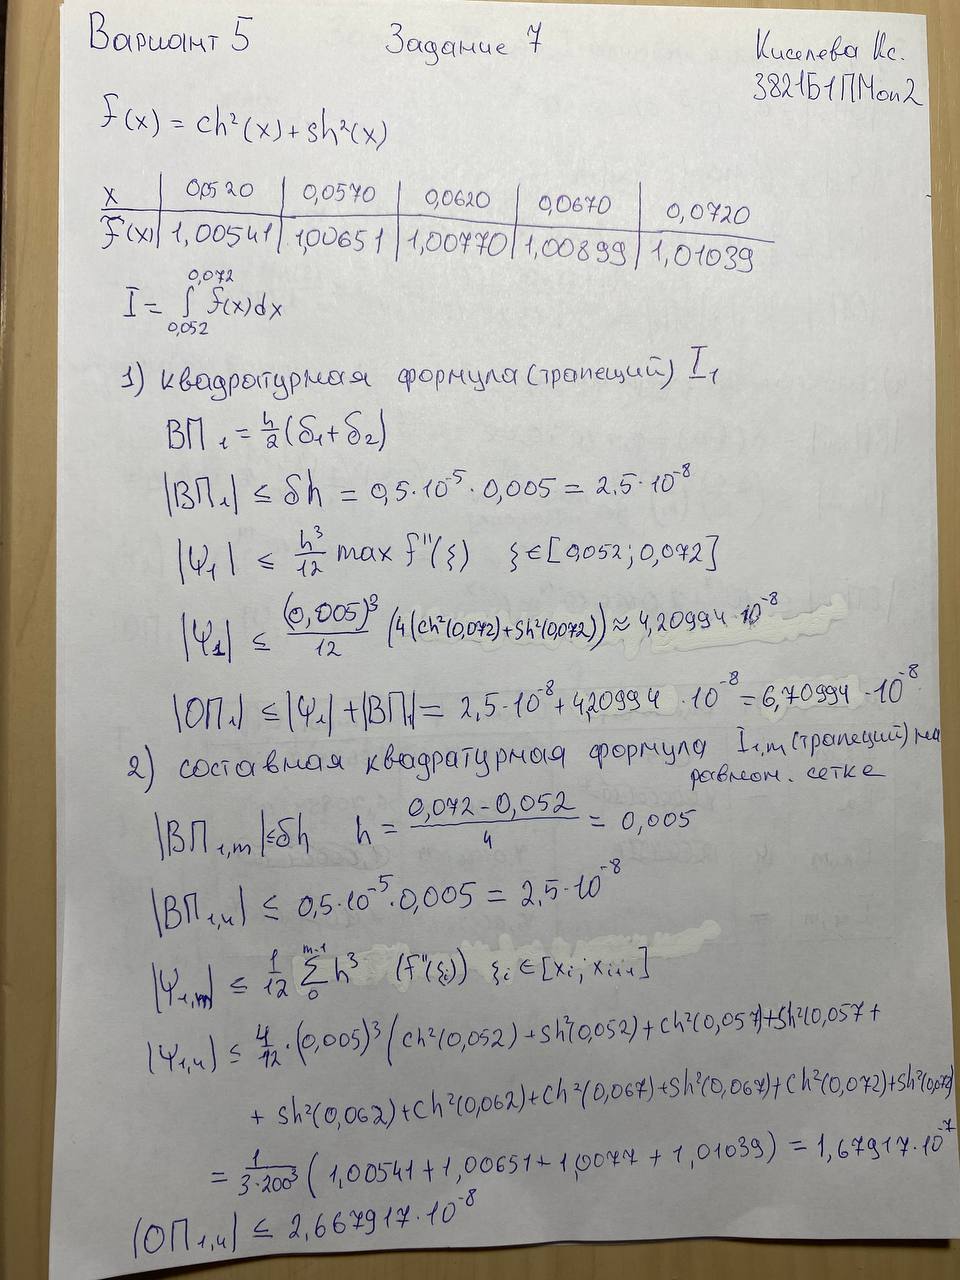 Вариант 5 Задание 7 Киселева Кс.
3821Б1ПМоп2
f(x) = ch²(x) + sh²(x)
x | 0,0520 | 0,0570 | 0,0620 | 0,0670 | 0,0720
f(x) | 1,00541 | 1,00651 | 1,00770 | 1,00899 | 1,01039
I = ∫_{0,052}^{0,072} f(x)dx
1) квадратурная формула (трапеций) I₁
ВП₁ = h/2 (δ₁ + δ₂)
|ВП₁| ≤ δh = 0,5·10⁻⁵ · 0,005 = 2,5·10⁻⁸
|Ψ₁| ≤ h³/12 max f''(ξ) ξ ∈ [0,052; 0,072]
|Ψ₁| ≤ (0,005)³/12 (4(ch²(0,072) + sh²(0,072)) ≈ 4,20994·10⁻⁸
|ОП₁| ≤ |Ψ₁| + |ВП₁| = 2,5·10⁻⁸ + 4,20994 · 10⁻⁸ = 6,70994 · 10⁻⁸
2) составная квадратурная формула I₁,m (трапеций) на
равном. сетке
|ВП₁,m| ≤ δh h = (0,072 - 0,052)/4 = 0,005
|ВП₁,₄| ≤ 0,5·10⁻⁵ · 0,005 = 2,5·10⁻⁸
|Ψ₁,m| ≤ 1/12 ∑_{0}^{m-1} h³ (f''(ξᵢ)) ξᵢ ∈ [xᵢ; xᵢ₊₁]
|Ψ₁,₄| ≤ 4/12 · (0,005)³ (ch²(0,052) + sh²(0,052) + ch²(0,057) + sh²(0,057 +
+ sh²(0,062) + ch²(0,062) + ch²(0,067) + sh²(0,067) + ch²(0,072) + sh²(0,072)
= 1/(3·200³) (1,00541 + 1,00651 + 1,0077 + 1,01039) = 1,67917·10⁻⁷
|ОП₁,₄| ≤ 2,667917·10⁻⁸